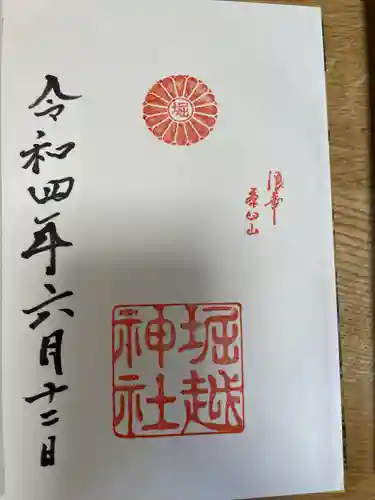 堀
浪華
茶臼山
堀越
神社
令和四年六月十二日